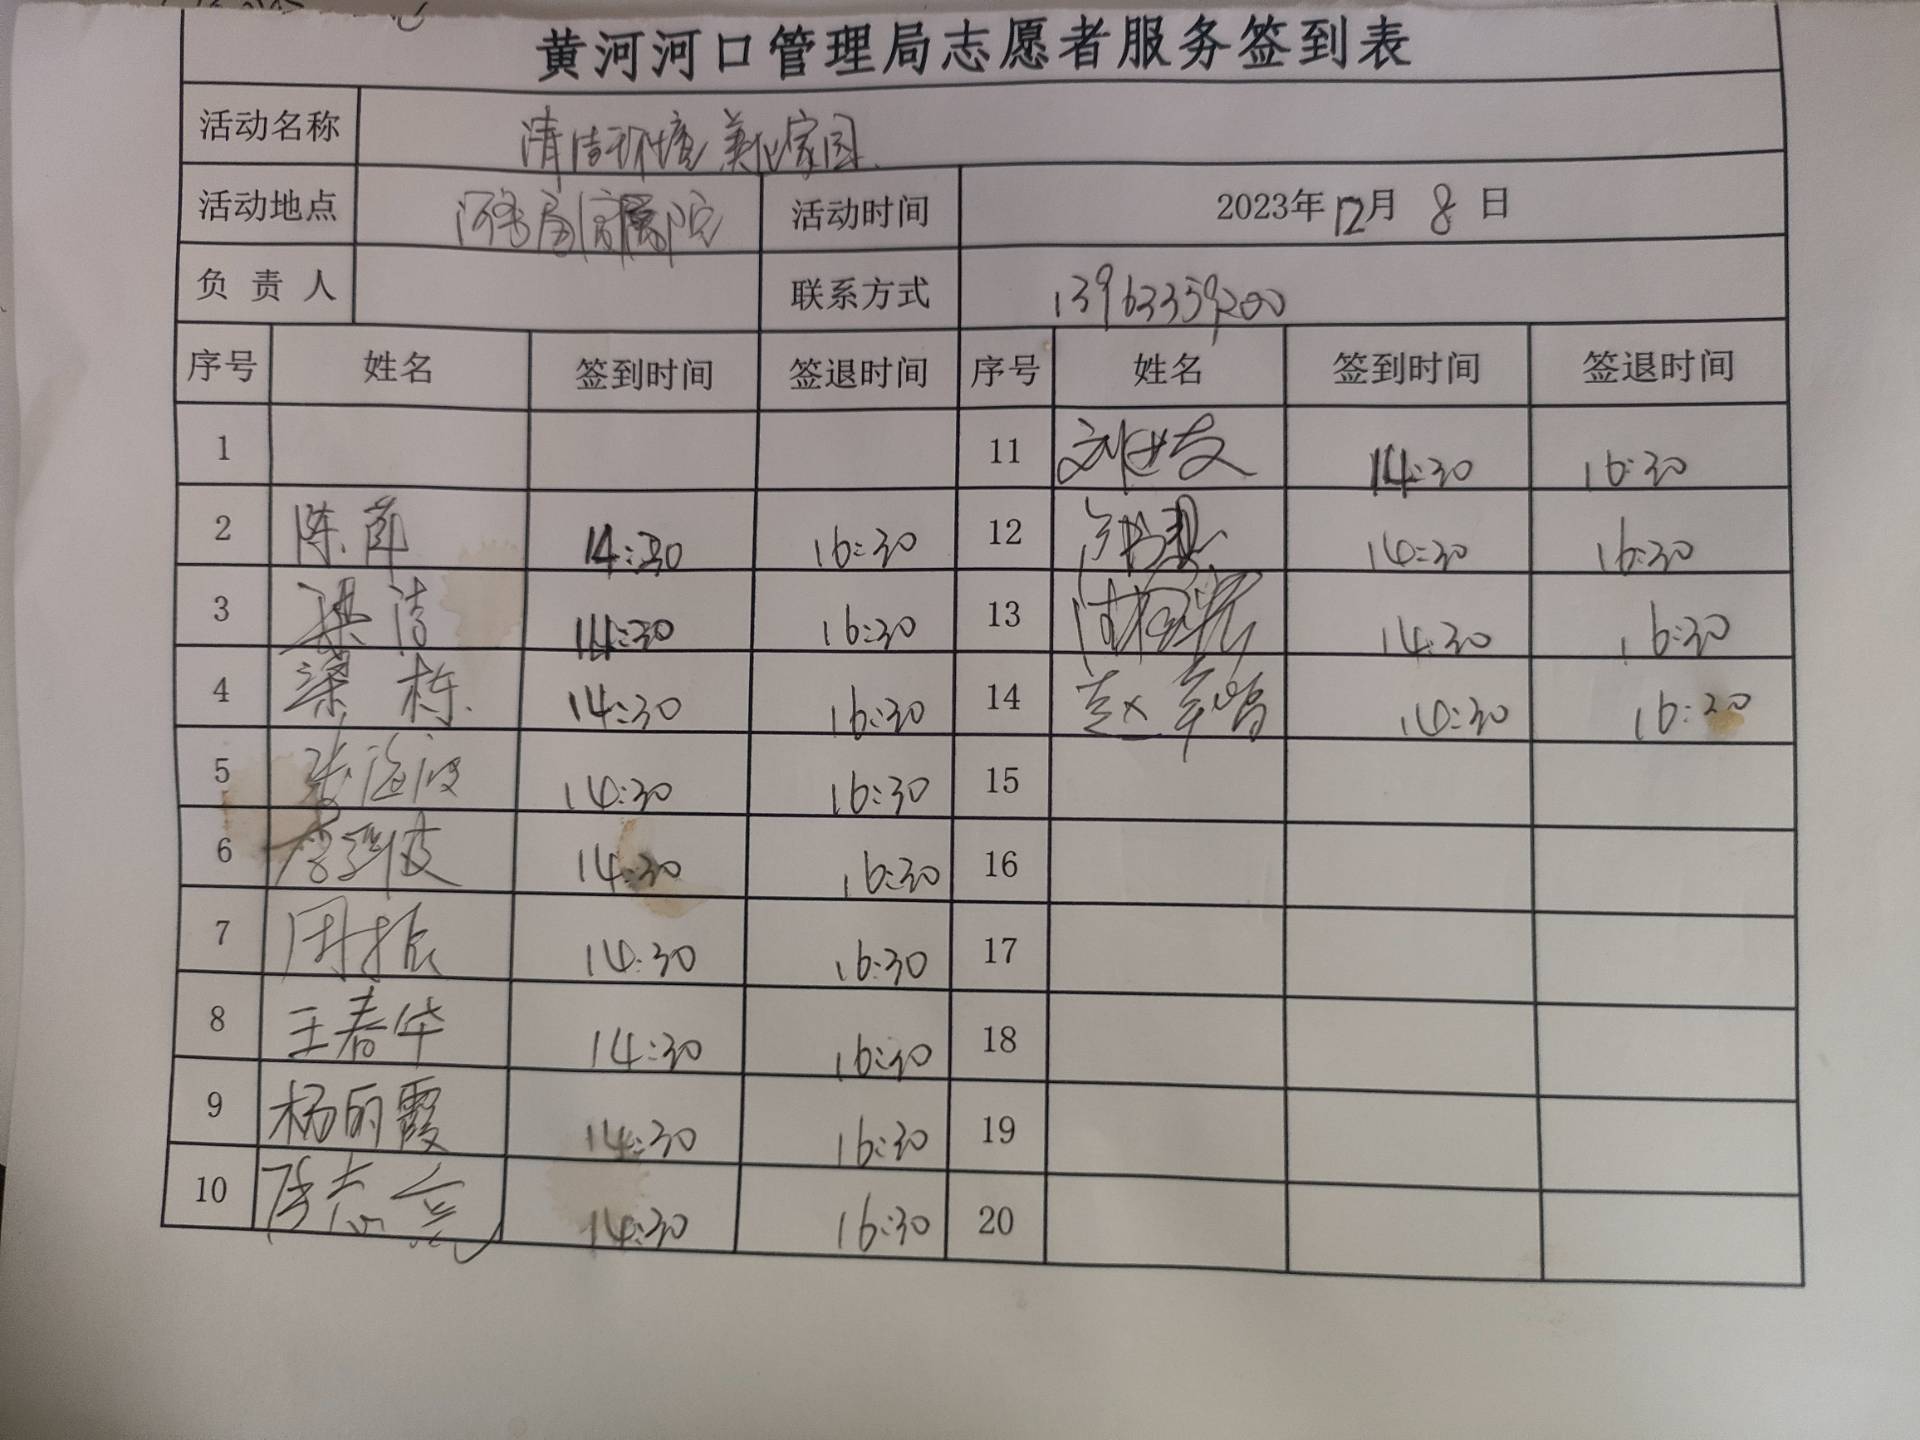 黄河河口管理局志愿者服务签到表
活动名称 清洁环境 美化家园
活动地点 活动时间 2023年12月8日
负责人 联系方式 13963359200
序号 姓名 签到时间 签退时间 序号 姓名 签到时间 签退时间
1 11 14:30 16:30
2 14:30 16:30 12 14:30 16:30
3 梁洁 14:30 16:30 13 14:30 16:30
4 梁栋 14:30 16:30 14 14:30 16:30
5 张海波 14:30 16:30 15
6 14:30 16:30 16
7 周振 14:30 16:30 17
8 王春华 14:30 16:30 18
9 杨丽霞 14:30 16:30 19
10 14:30 16:30 20